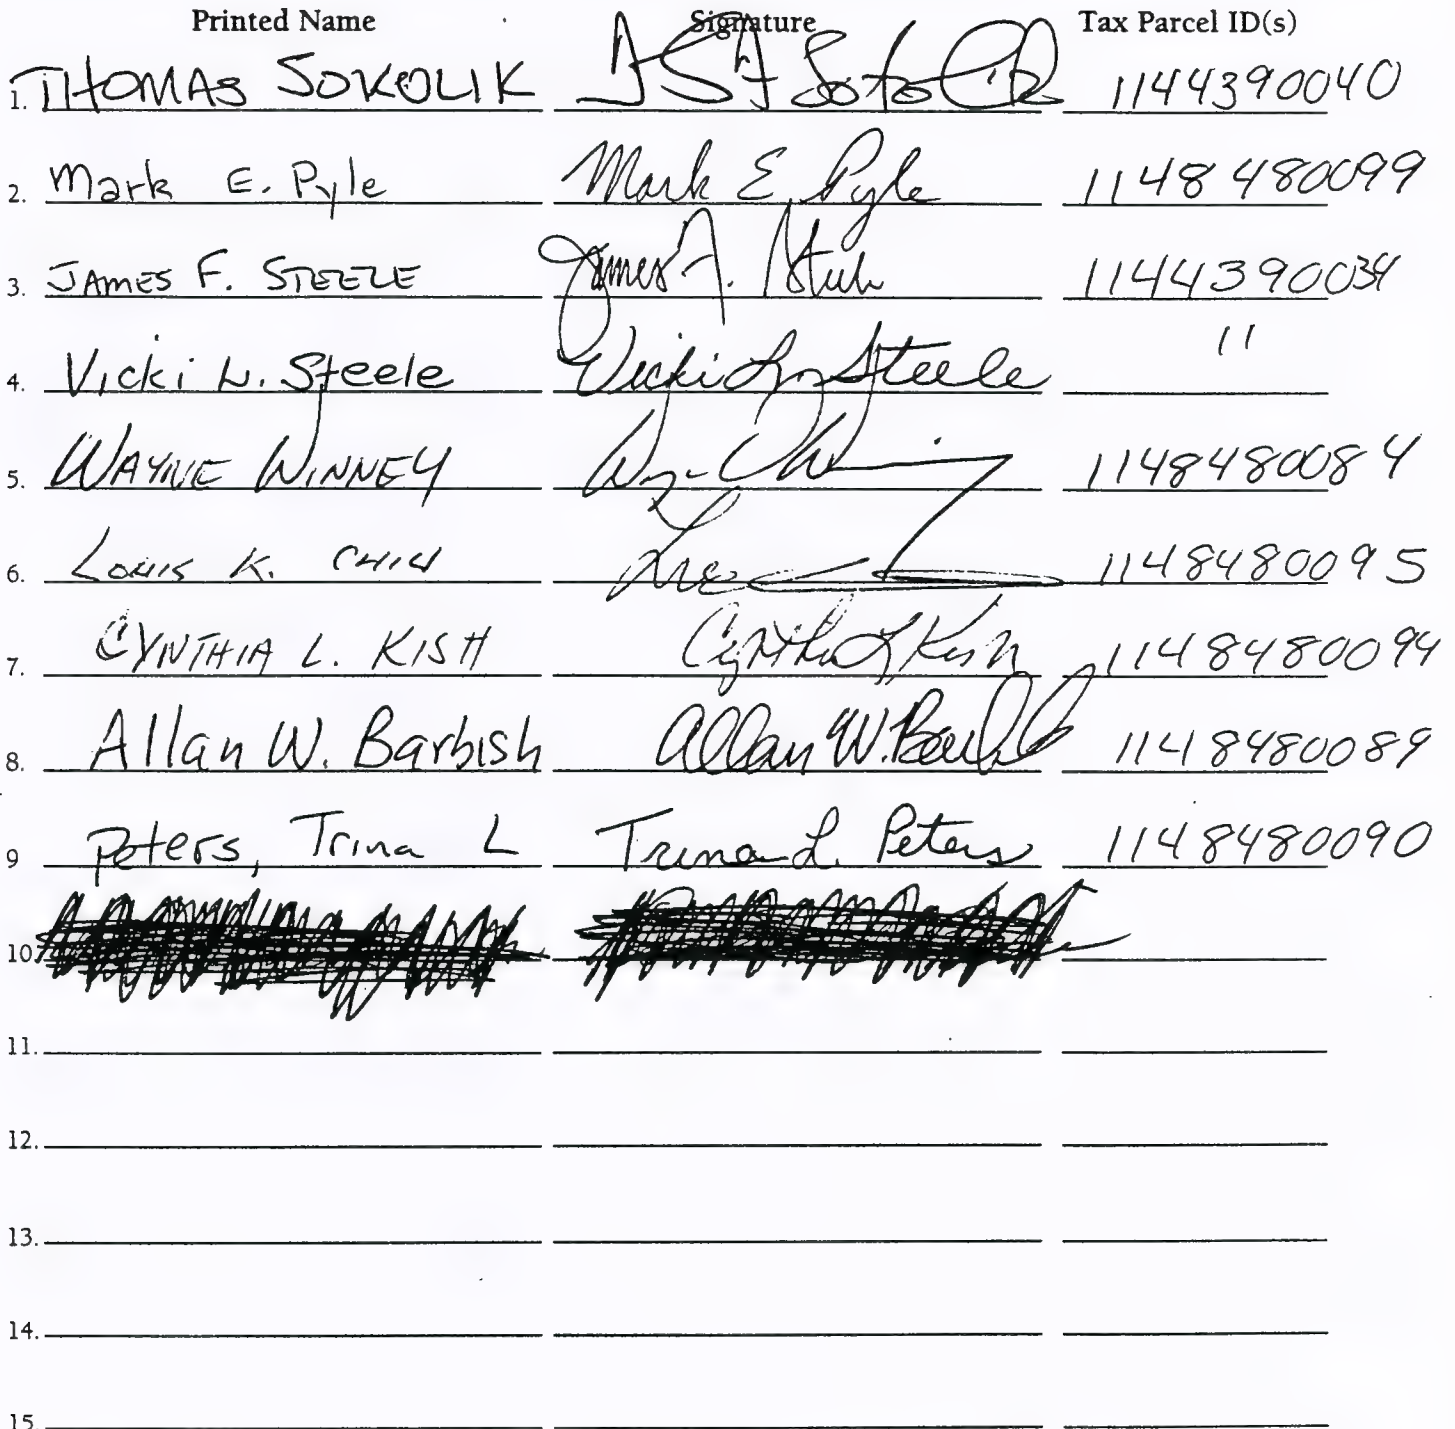 Printed Name Signature Tax Parcel ID(s)
1. THOMAS SOKOLIK 1144390040
2. Mark E. Pyle Mark E. Pyle 1148480099
3. JAMES F. STEELE James F. Steele 1144390034
4. Vicki L. Steele Vicki L. Steele 11
5. WAYNE WINNEY 1148480084
6. LOUIS K. 1148480095
7. CYNTHIA L. KISH Cynthia L Kish 1148480094
8. Allan W. Barbish Allan W. Barbish 1148480089
9 Peters, Trina L Trina L. Peters 1148480090
10
11.
12.
13.
14.
15.